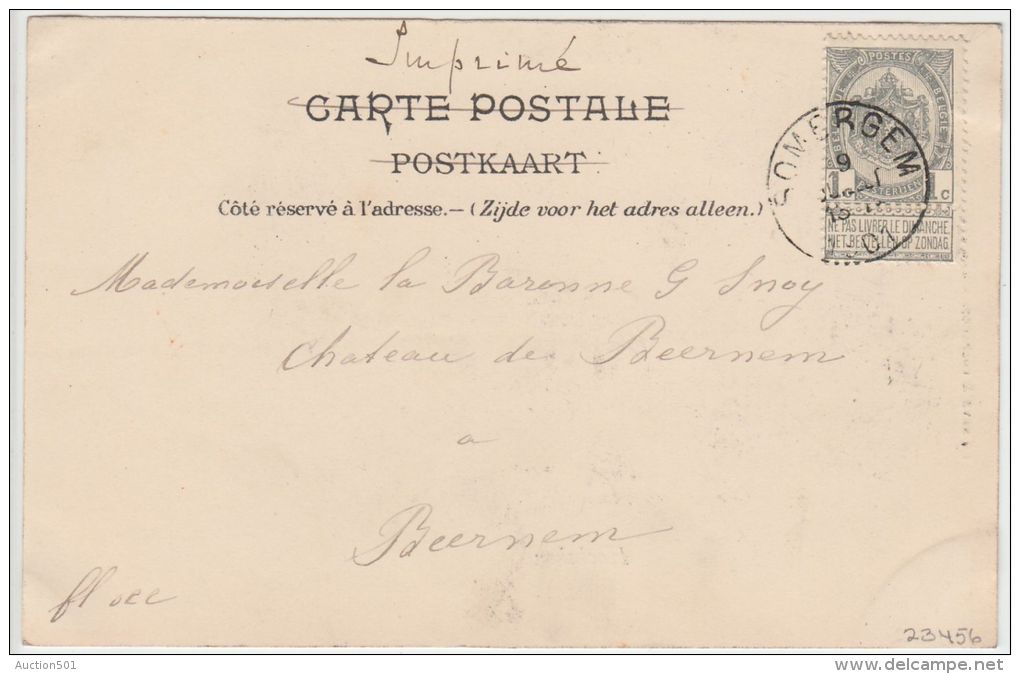 Imprimé
CARTE POSTALE
POSTKAART
Côté réservé à l'adresse.— (Zijde voor het adres alleen.)
POSTES
BELGIQUE
BELGIE
POSTERIJEN
1 1 C
NE PAS LIVRER LE DIMANCHE
NIET BESTELLEN OP ZONDAG
SOMERGEM
9
01
Mademoiselle la Baronne G Snoy
Chateau de Beernem
a
Beernem
23456
Auction501
www.delcampe.net